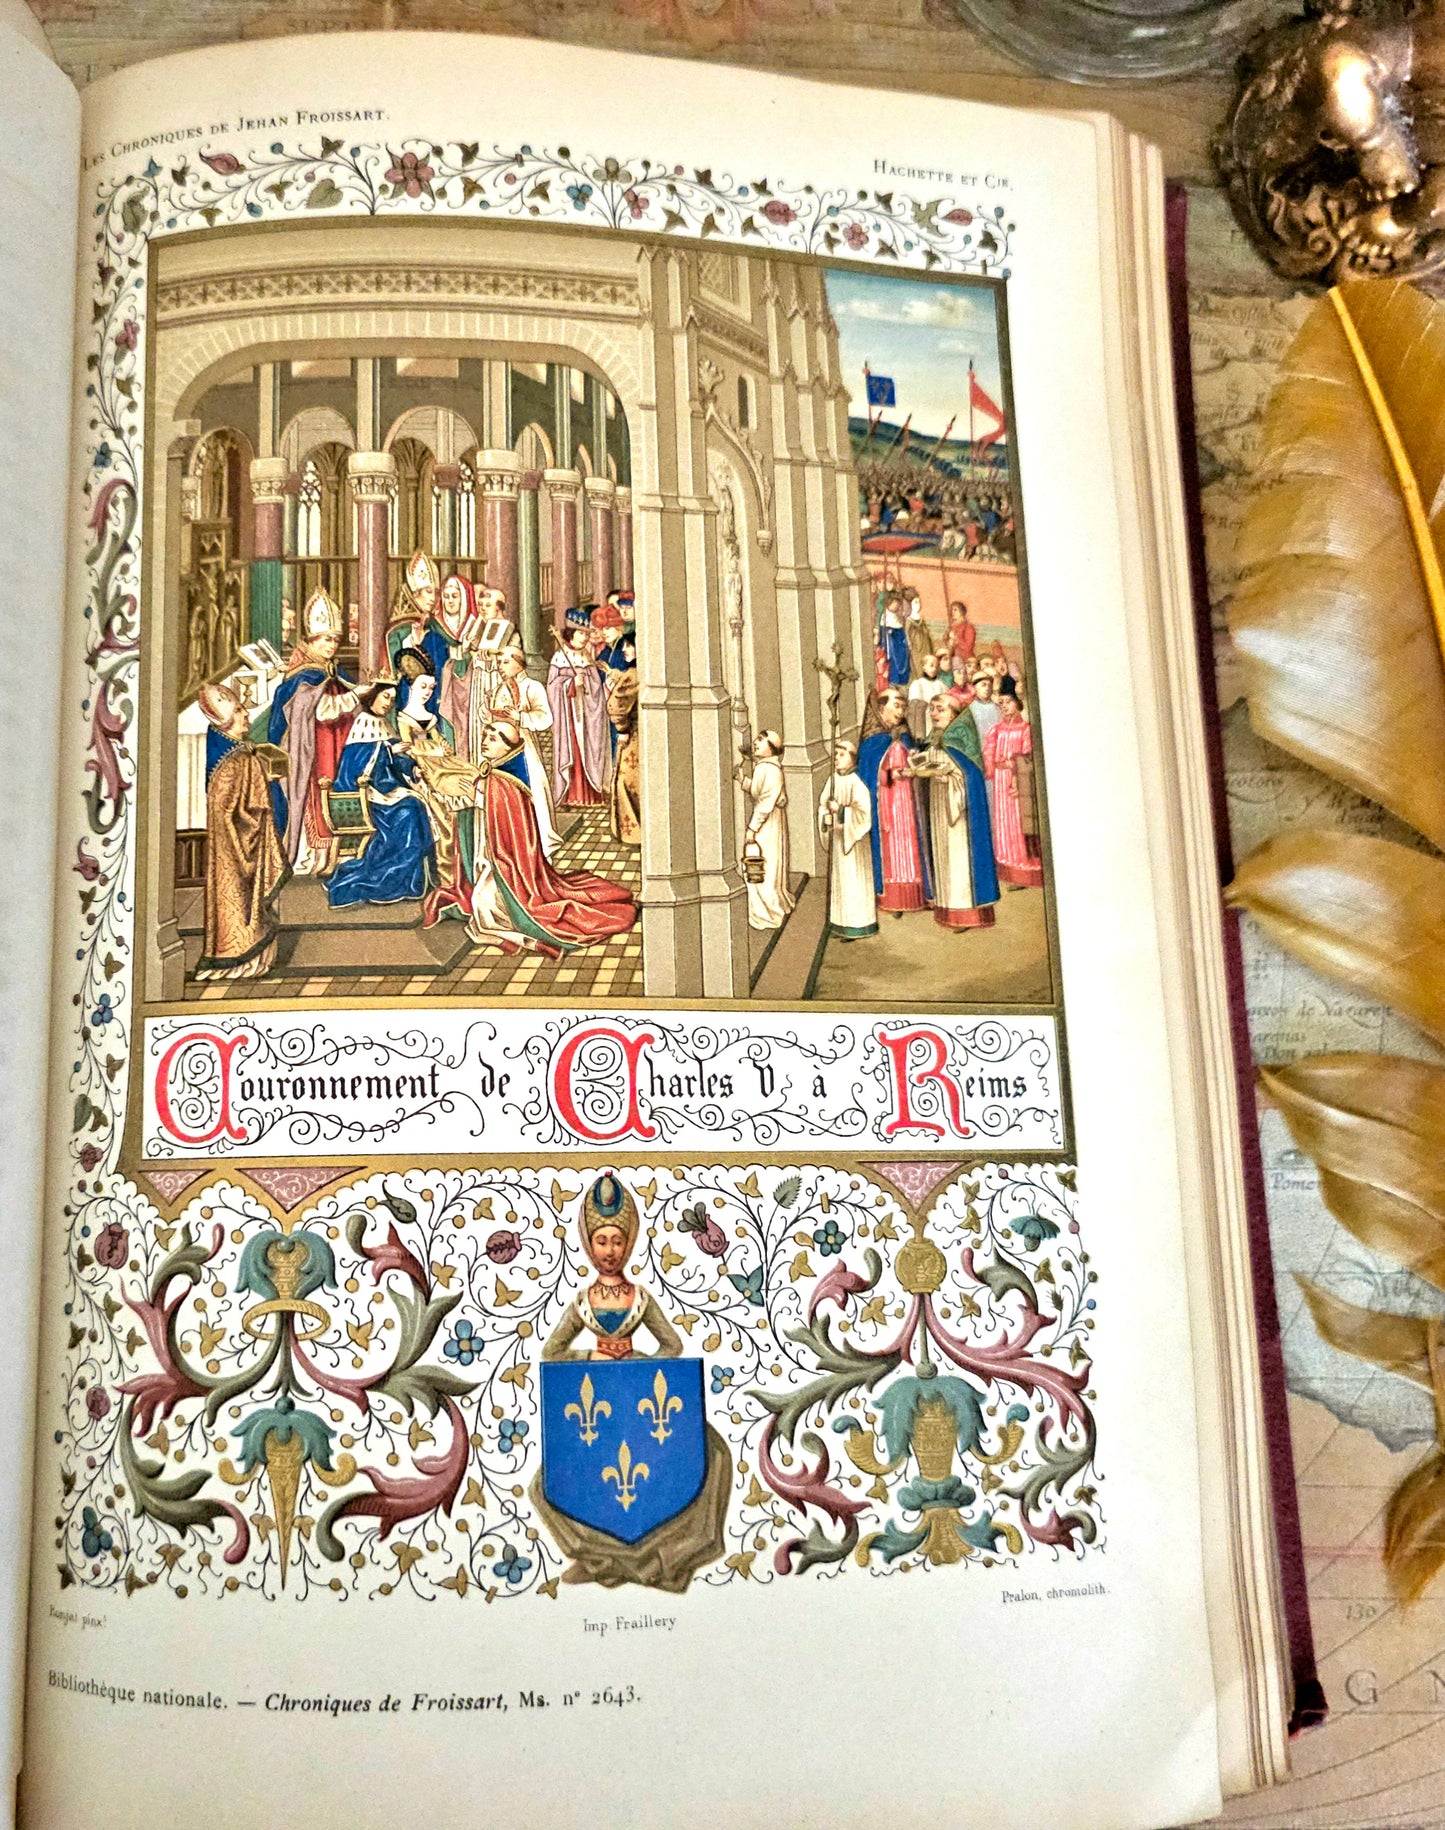 Les Chroniques de Jehan Froissart.
Hachette et Cie.
Couronnement de Charles V à Reims
Pralon, chromolith.
Imp. Fraillery
Bibliothèque nationale. — Chroniques de Froissart, Ms. n° 2643.
130
G